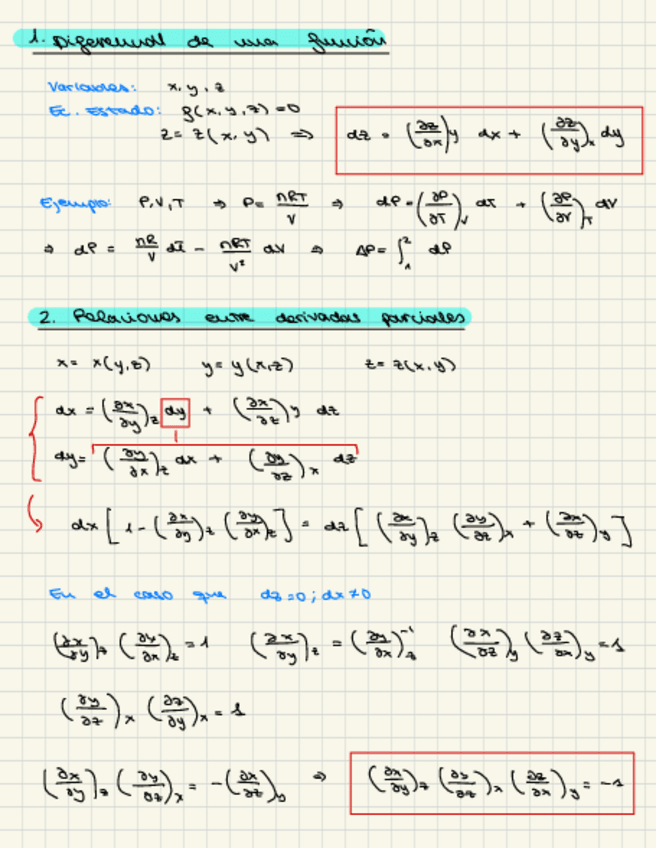 1. Diferencial de una función
Variables: x, y, z
Ec. Estado: f(x, y, z) = 0
z = z(x, y) ⇒ dz = (∂z/∂x)_y dx + (∂z/∂y)_x dy
Ejemplo: P, V, T → P = nRT/V ⇒ dP = (∂P/∂T)_V dT + (∂P/∂V)_T dV
⇒ dP = nR/V dT − nRT/V² dV ⇒ ΔP = ∫₁² dP
2. Relaciones entre derivadas parciales
x = x(y, z) y = y(x, z) z = z(x, y)
dx = (∂x/∂y)_z dy + (∂x/∂z)_y dz
dy = (∂y/∂x)_z dx + (∂y/∂z)_x dz
dx [1 − (∂x/∂y)_z (∂y/∂x)_z] = dz [(∂x/∂y)_z (∂y/∂z)_x + (∂x/∂z)_y]
En el caso que dz = 0 ; dx ≠ 0
(∂x/∂y)_z (∂y/∂x)_z = 1 (∂x/∂y)_z = (∂y/∂x)_z⁻¹ (∂x/∂z)_y (∂z/∂x)_y = 1
(∂y/∂z)_x (∂z/∂y)_x = 1
(∂x/∂y)_z (∂y/∂z)_x = −(∂x/∂z)_y ⇒ (∂x/∂y)_z (∂y/∂z)_x (∂z/∂x)_y = −1